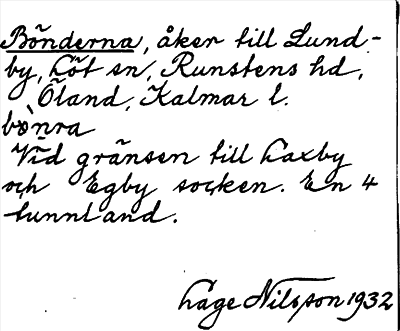 Bönderna, åker till Lund-
by, Löt sn, Runstens hd,
Öland, Kalmar l.
bònra
Vid gränsen till Laxby
och Egby socken. En 4
tunnland.
Lage Nilsson 1932